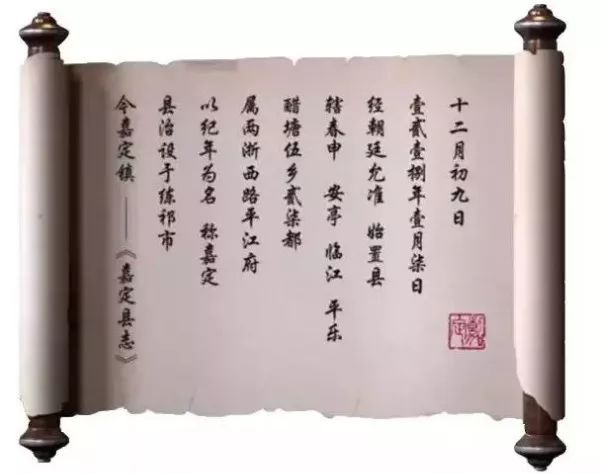 十二月初九日
壹贰壹捌年壹月柒日
经朝廷允准 始置县
辖春申 安亭 临江 平乐
醋塘伍乡贰柒都
属两浙西路平江府
以纪年为名 称嘉定
县治设于练祁市
今嘉定镇 ——《嘉定县志》
嘉定